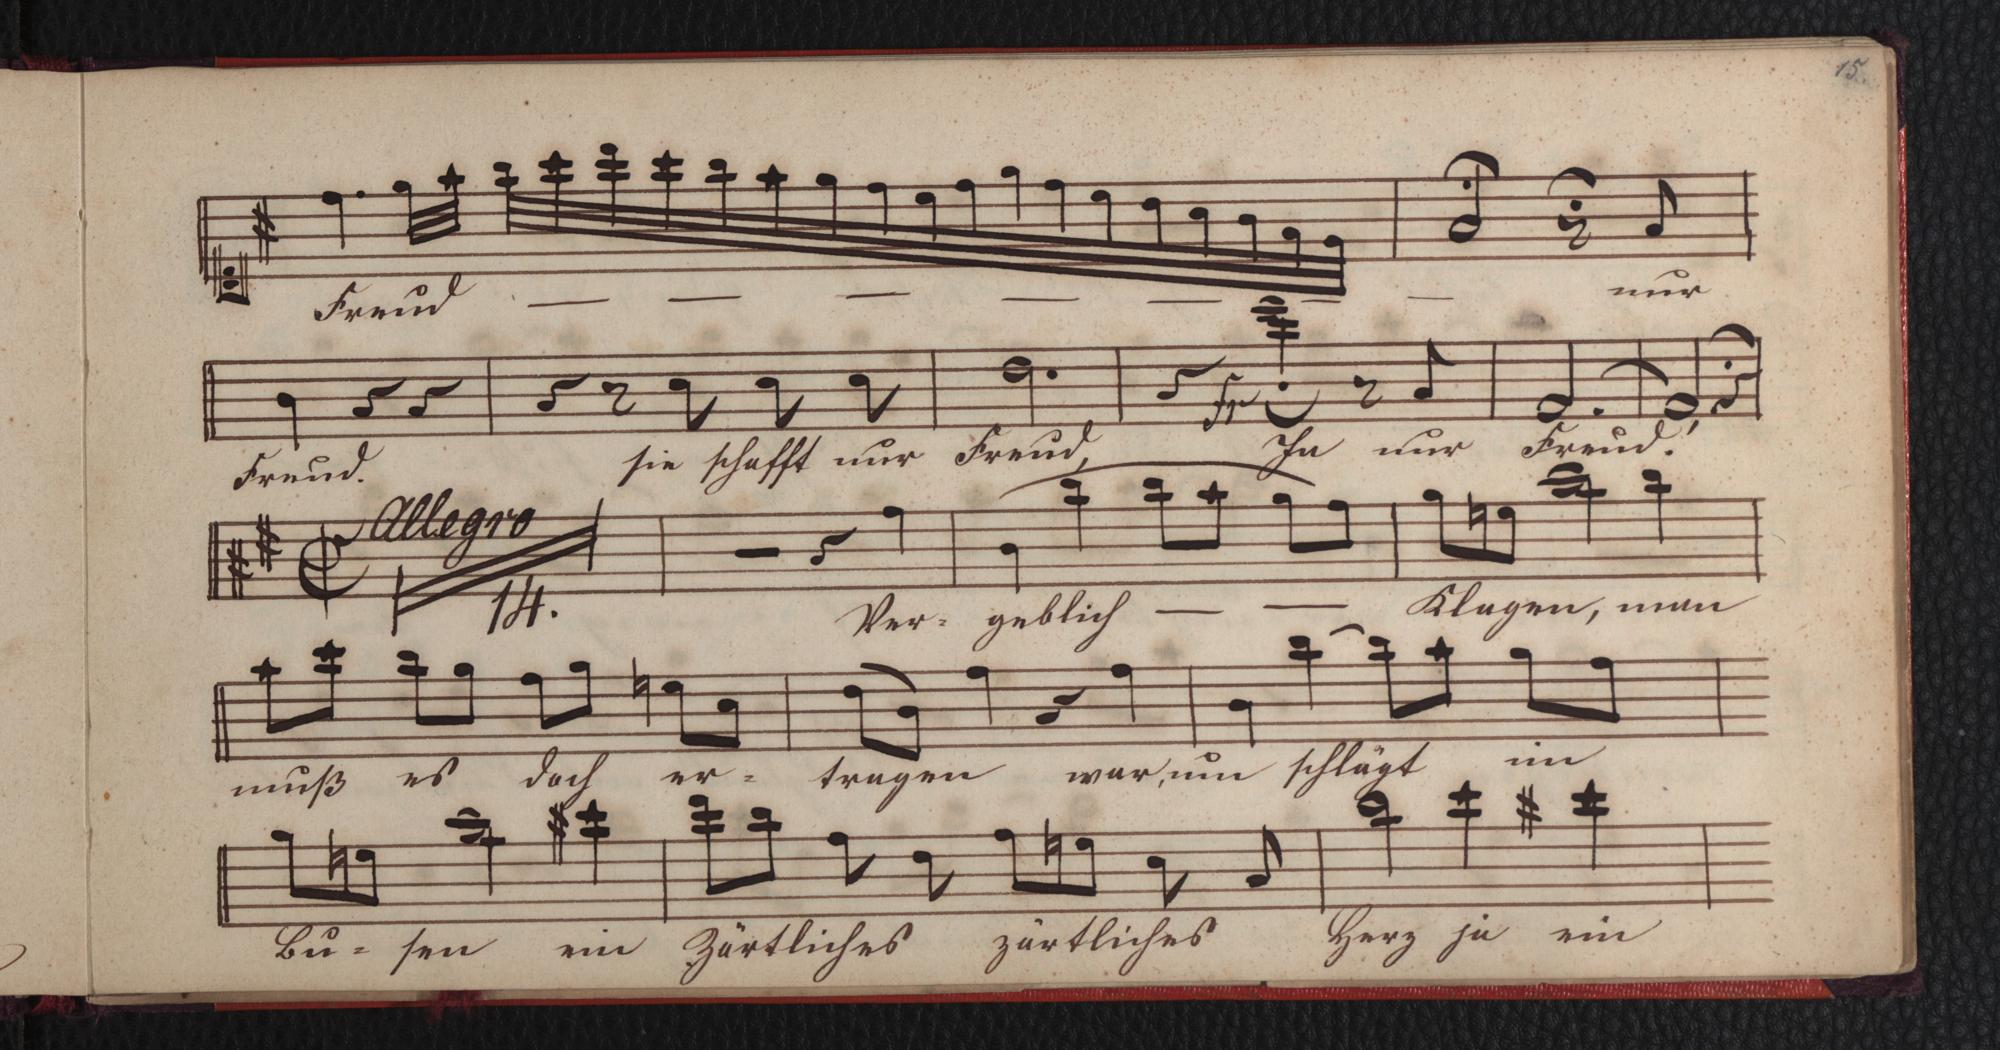 15.
Freud — — — — — — — nur
Freud. sie schafft nur Freud, Ja nur Freud!
Allegro
14.
Ver- geblich — — Klagen, man
muß es doch er- tragen war,um schlägt im
Bu- sen ein Zärtliches zärtliches Herz ja ein